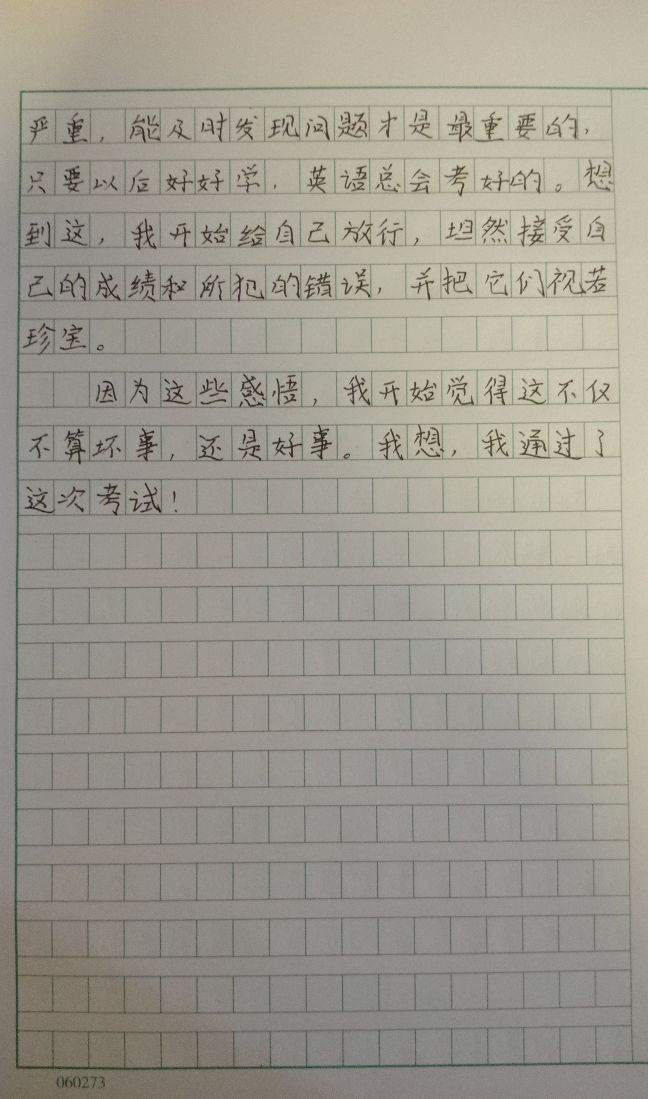 严重，能及时发现问题才是最重要的，
只要以后好好学，英语总会考好的。想
到这，我开始给自己放行，坦然接受自
己的成绩和所犯的错误，并把它们视若
珍宝。
因为这些感悟，我开始觉得这不仅
不算坏事，还是好事。我想，我通过了
这次考试！
060273